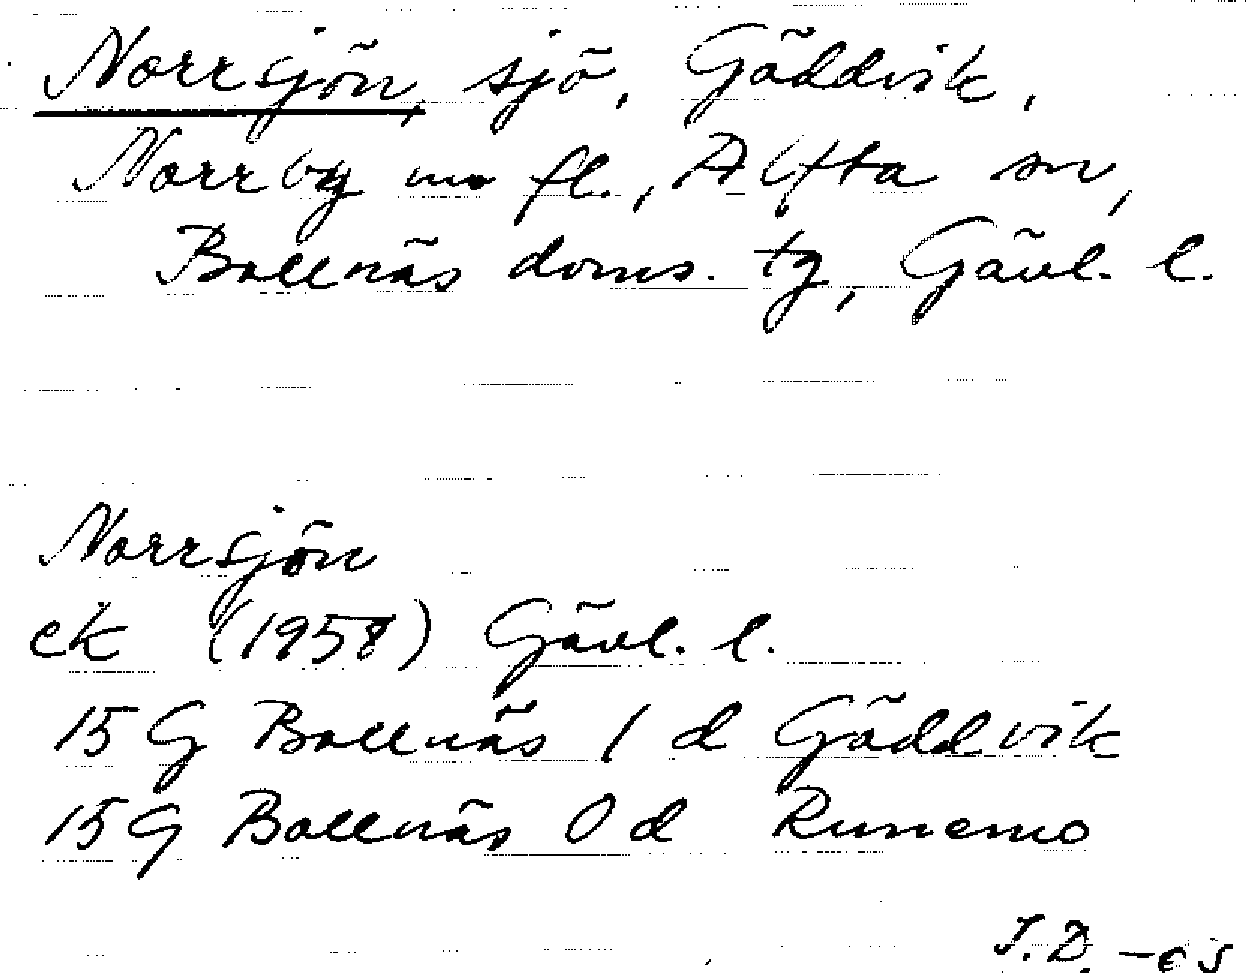 Norrsjön, sjö, Gäddvik,
Norrby m fl., Alfta sn,
Bollnäs doms. tg, Gävl. l.
Norrsjön
ek (1958) Gävl. l.
15 G Bollnäs 1 d Gäddvik
15 G Bollnäs 0 d Runemo